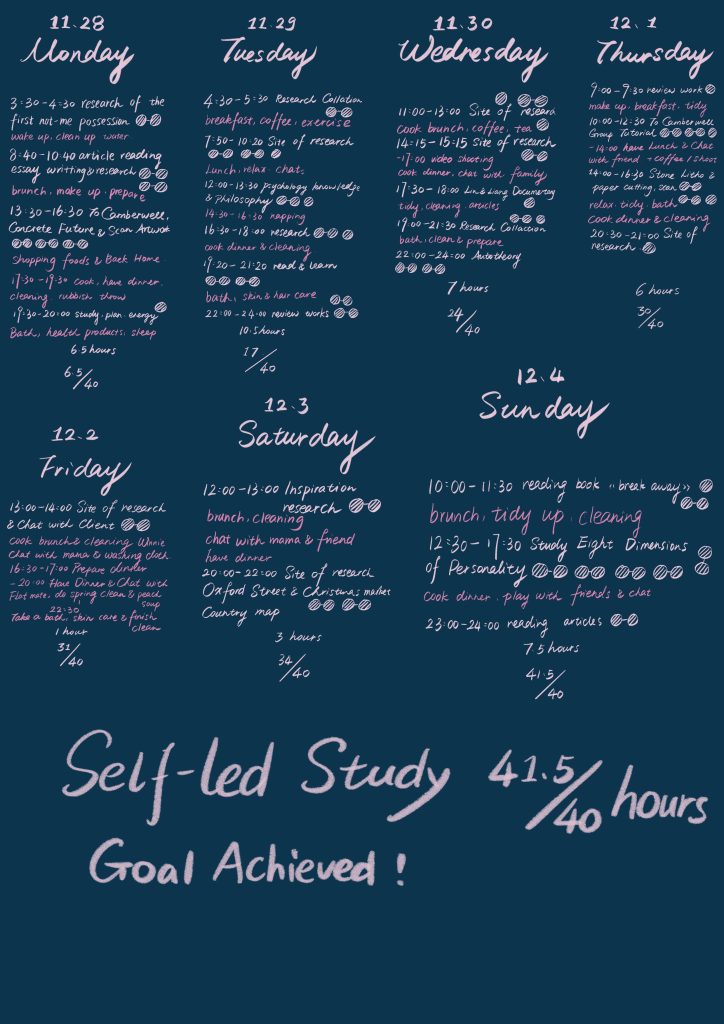 11.28
Monday
3:30-4:30 research of the
first not-me possession
wake up, clean up water
8:40-10:40 article reading
essay writing & research
brunch, make up. prepare
13:30-16:30 To Camberwell,
Concrete Future & Scan Artwork
shopping foods & Back Home.
17:30-19:30 cook, have dinner.
cleaning. rubbish throw
19:30-20:00 study. plan. energy
Bath, health products. sleep
6.5 hours
6.5/40
11.29
Tuesday
4:30-5:30 Research Collation
breakfast, coffee, exercise
7:50-10:20 Site of research
Lunch, relax. chat.
12:00-13:30 psychology knowledge
& Philosophy
14:30-16:30 napping
16:30-18:00 research
cook dinner & cleaning
19:20-21:20 read & learn
bath, skin & hair care
22:00-24:00 review works
10.5 hours
17/40
11.30
Wednesday
11:00-13:00 Site of research
Cook brunch, coffee, tea
14:15-15:15 Site of research
-17:00 video shooting
cook dinner, chat with family
17:30-18:00 Lin & Liang Documentary
tidy, cleaning. articles
19:00-21:30 Research Collaction
bath, clean & prepare
22:00-24:00 Autotheory
7 hours
24/40
12.1
Thursday
9:00-9:30 review work
make up. breakfast. tidy
10:00-12:30 To Camberwell
Group Tutorial
-14:00 have Lunch & Chat
with friend + coffee / shoot
14:00-16:30 Stone Litho &
paper cutting, scan
relax. tidy. bath
Cook dinner & cleaning
20:30-21:00 Site of
research
6 hours
30/40
12.2
Friday
13:00-14:00 Site of research
& Chat with Client
Cook brunch & cleaning Winnie
Chat with mama & washing cloth
16:30-17:00 Prepare dinner
-20:00 Have Dinner & Chat with
Flat mate, do spring clean & peach
soup
22:30
Take a bath, skin care & finish
clean
1 hour
31/40
12.3
Saturday
12:00-13:00 Inspiration
research
brunch, cleaning
chat with mama & friend
have dinner
20:00-22:00 Site of research
Oxford Street & Christmas market
Country map
3 hours
34/40
12.4
Sunday
10:00-11:30 reading book «break away»
brunch, tidy up. cleaning
12:30-17:30 Study Eight Dimensions
of Personality
Cook dinner. play with friends & chat
23:00-24:00 reading articles
7.5 hours
41.5/40
Self-led Study 41.5/40 hours
Goal Achieved!